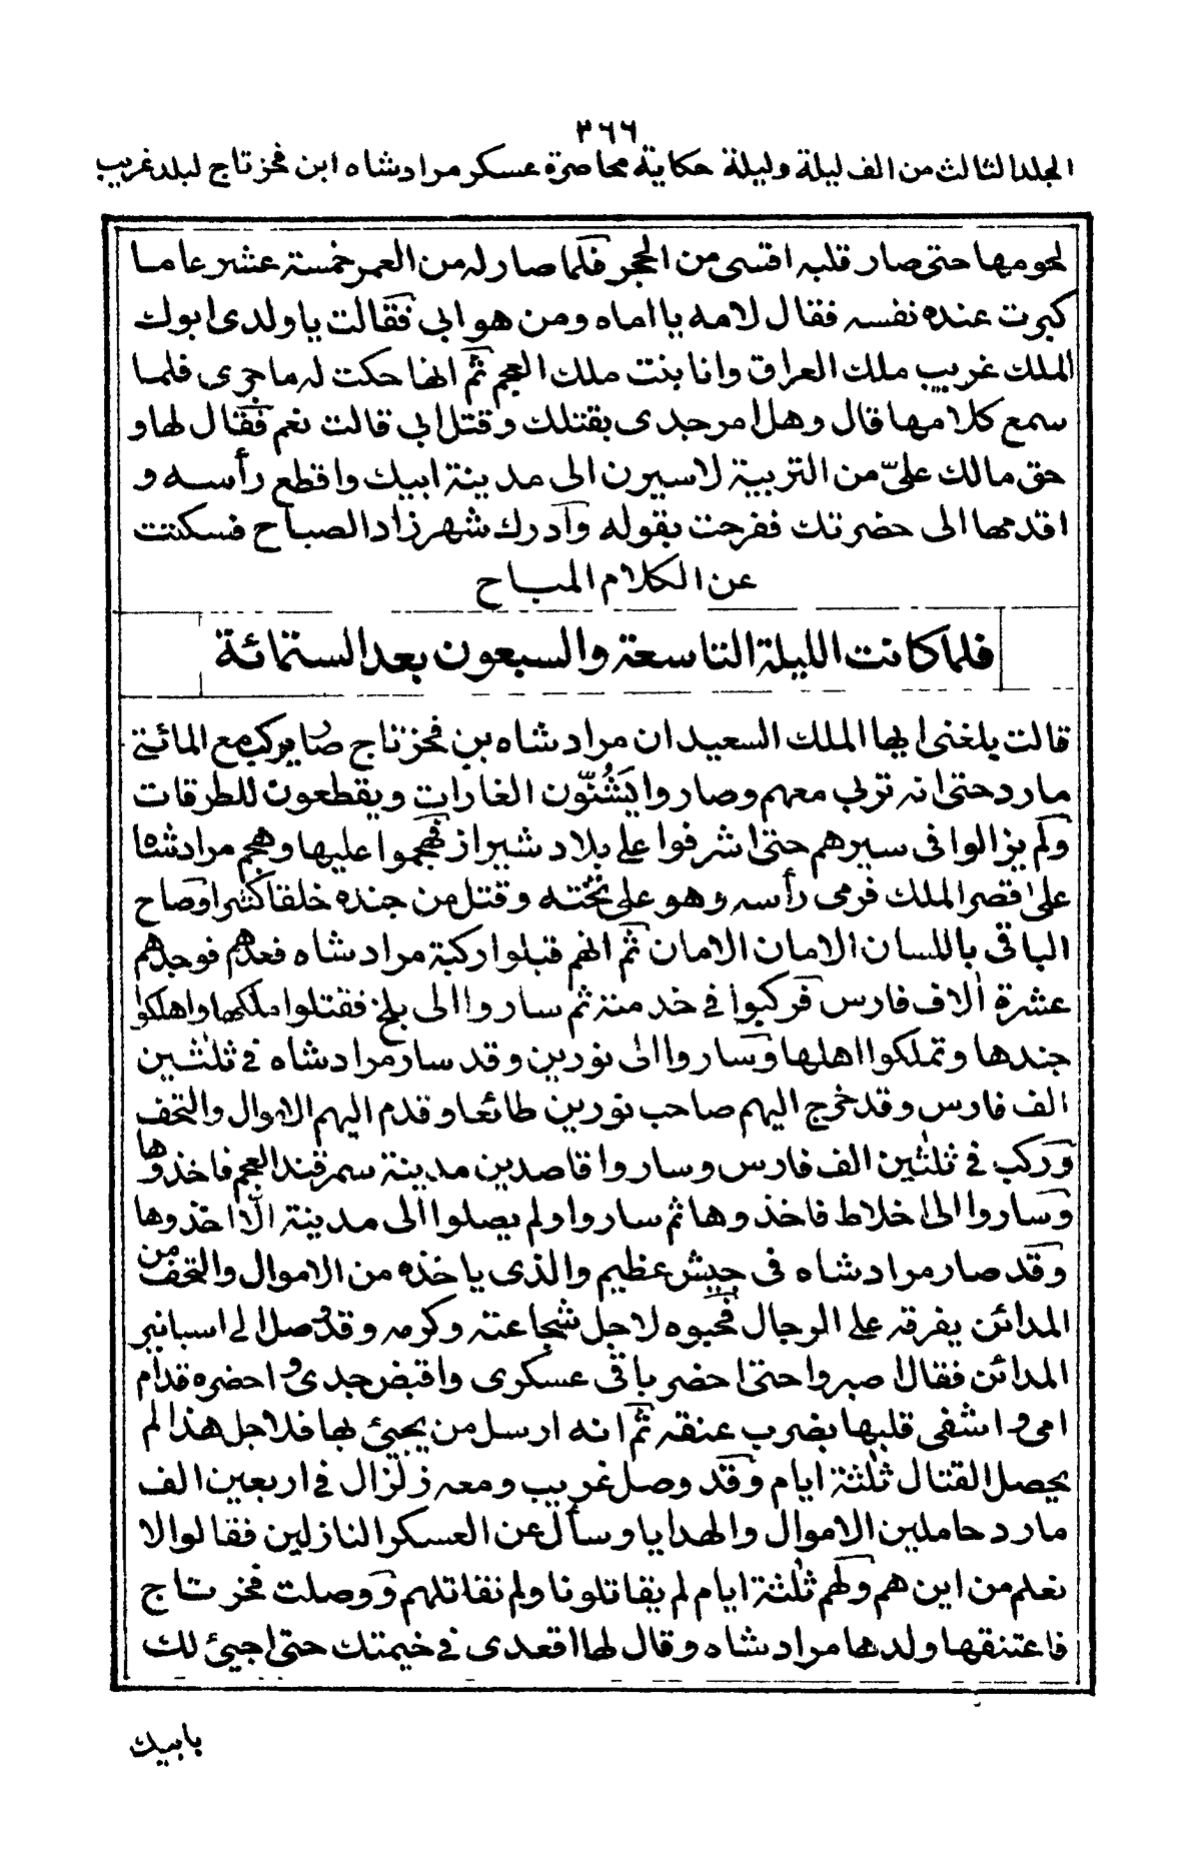 ٣٦٦
المجلد الثالث من الف ليلة وليلة حكاية محاصرة عسكر مراد شاه ابن فخر تاج لبلد غريب
لحومها حتى صار قلبه اقسى من الحجر فلما صار له من العمر خمسة عشر عاما
كبرت عنده نفسه فقال لامه يا اماه ومن هو ابي فقالت يا ولدى ابوك
الملك غريب ملك العراق وانا بنت ملك العجم ثم انها حكت له ما جرى فلما
سمع كلامها قال وهل امر جدى بقتلك وقتل ابي قالت نعم فقال لها و
حق مالك علىّ من التربية لاسيرن الى مدينة ابيك واقطع رأسه و
اقدمها الى حضرتك ففرحت بقوله وادرك شهرزاد الصباح فسكتت
عن الكلام المباح
فلما كانت الليلة التاسعة والسبعون بعد الستمائة
قالت بلغنى ايها الملك السعيد ان مراد شاه بن فخر تاج صار يركب مع المائتي
مارد حتى انه تربى معهم وصاروا يَشُنّون الغارات ويقطعون للطرقات
ولم يزالوا فى سيرهم حتى اشرفوا على بلاد شيراز فهجموا عليها وهجم مراد شاه
على قصر الملك فرمى رأسه وهو على تخته وقتل من جنده خلقا كثيرا وصاح
الباقى باللسان الامان الامان ثم انهم قبلوا ركبة مراد شاه فعدهم فوجدهم
عشرة الاف فارس فركبوا في خدمته ثم ساروا الى بلخ فقتلوا ملكها واهلكوا
جندها وتملكوا اهلها وساروا الى نورين وقد سار مراد شاه في ثلثين
الف فارس وقد خرج اليهم صاحب نورين طائعا وقدم اليهم الاموال والتحف
وركب في ثلثين الف فارس وساروا قاصدين مدينة سمرقند العجم فاخذوها
وساروا الى اخلاط فاخذوها ثم ساروا ولم يصلوا الى مدينة الّا اخذوها
وقد صار مراد شاه فى جيش عظيم والذى ياخذه من الاموال والتحف من
المدائن يفرقه على الرجال فحبوه لاجل شجاعته وكرمه وقد وصل الى اسبانير
المدائن فقال اصبروا حتى احضر باقى عسكرى واقبض جدى واحضره قدام
امى واشفى قلبها بضرب عنقه ثم انه ارسل من يجيئ بها فلاجل هذا لم
يحصل القتال ثلثة ايام وقد وصل غريب ومعه زلزال في اربعين الف
مارد حاملين الاموال والهدايا وسأل عن العسكر النازلين فقالوا لا
نعلم من اين هم ولهم ثلثة ايام لم يقاتلونا ولم نقاتلهم ووصلت فخر تاج
فاعتنقها ولدها مراد شاه وقال لها اقعدى في خيمتك حتى اجيئ لك
بابيك